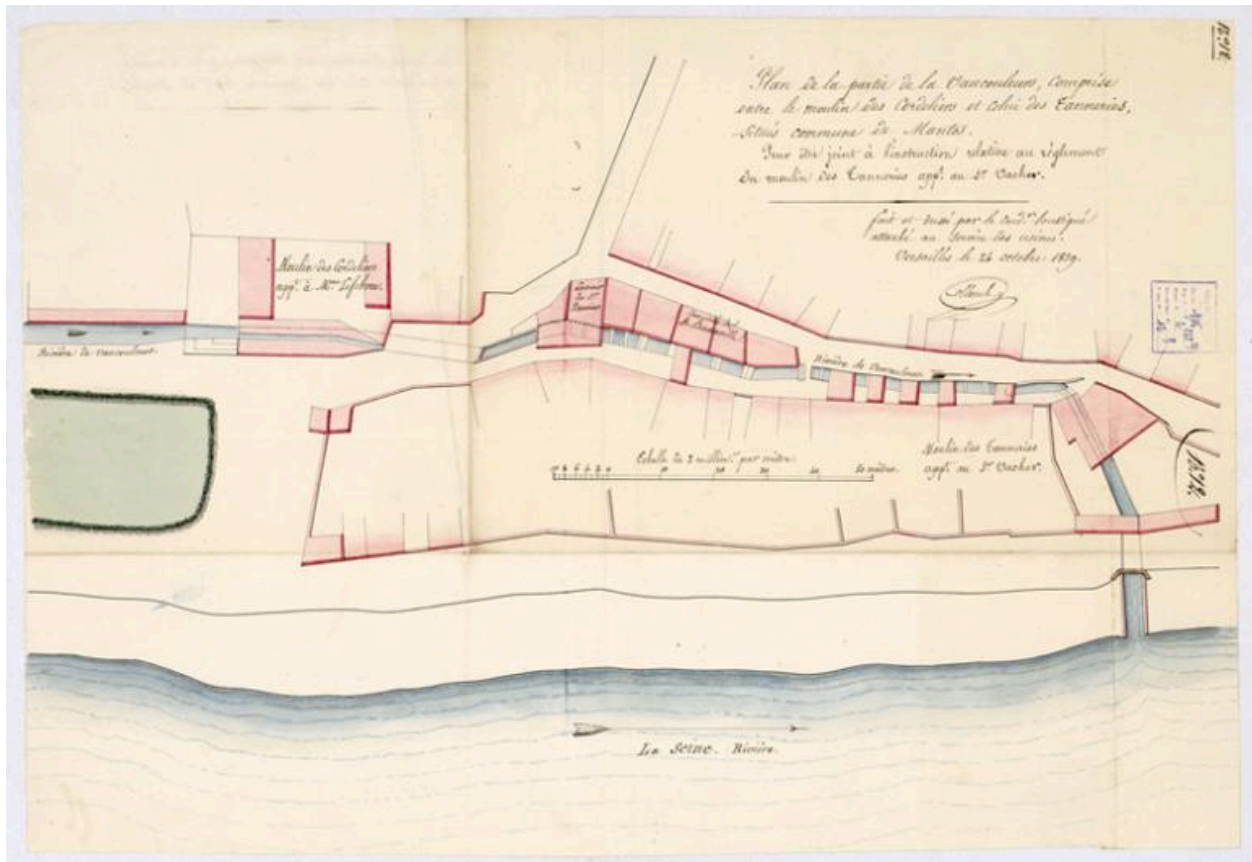 Plan de la partie de la Vaucouleurs, comprise
entre le moulin des Cordeliers et celui des Tanneries,
Situés commune de Mantes.
Pour être joint à l'instruction relative au règlement
du moulin des Tanneries appt. au Sr. Vacher.
fait et dressé par le
attaché au Service des usines.
Versailles le 24 octobre 1839.
Moulin des Cordeliers
appt. à Mme. Lefebvre.
Rivière de Vaucouleurs
Rivière de Vaucouleurs
Echelle de 2 millimt. par mètre.
50 mètres.
Moulin des Tanneries
appt. au Sr. Vacher.
La Seine. Rivière.